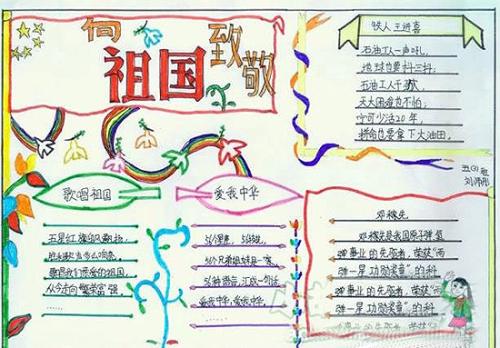 向
祖国
致敬
铁人王进喜
石油工人一声吼，
地球也要抖三抖；
石油工人干劲大，
天大困难也不怕；
宁可少活20年，
拼命也要拿下大油田。
歌唱祖国
五星红旗迎风飘扬，
胜利歌声多么响亮，
歌唱我们亲爱的祖国，
从今走向繁荣富强，
爱我中华
56个星座，56枝花，
56个兄弟姐妹是一家，
56种语言，汇成一句话，
爱我中华，爱我中华，
邓稼先
邓稼先是我国原子弹氢
弹事业的先驱者，荣获"两
弹一星功勋奖章"的科
弹事业的先驱者，荣获"两
弹一星功勋奖章"的科